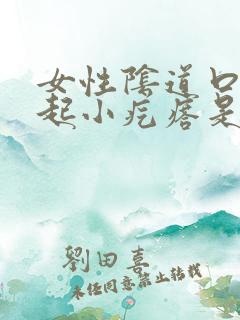 女性陰道口
起小疙瘩是
劉田喜
未経同意禁止转载